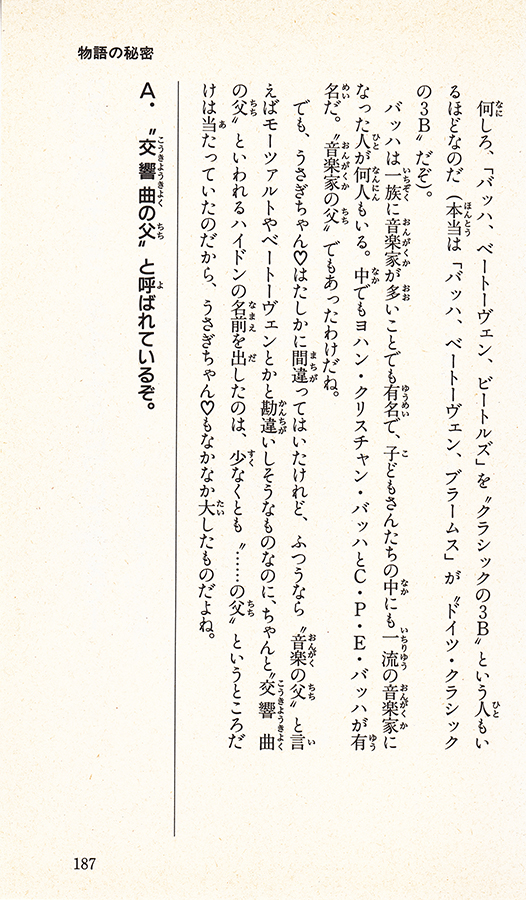 物語の秘密
何しろ、「バッハ、ベートーヴェン、ビートルズ」を〝クラシックの3B〟という人もい
るほどなのだ（本当は「バッハ、ベートーヴェン、ブラームス」が〝ドイツ・クラシック
の3B〟だぞ）。
バッハは一族に音楽家が多いことでも有名で、子どもさんたちの中にも一流の音楽家に
なった人が何人もいる。中でもヨハン・クリスチャン・バッハとC・P・E・バッハが有
名だ。〝音楽家の父〟でもあったわけだね。
でも、うさぎちゃん♡はたしかに間違ってはいたけれど、ふつうなら〝音楽の父〟と言
えばモーツァルトやベートーヴェンとかと勘違いしそうなものなのに、ちゃんと〝交響曲
の父〟といわれるハイドンの名前を出したのは、少なくとも〝……の父〟というところだ
けは当たっていたのだから、うさぎちゃん♡もなかなか大したものだよね。
A・〝交響曲の父〟と呼ばれているぞ。
187